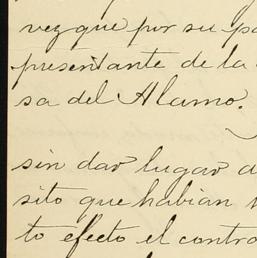 vez que por su pa
presentante de la
sa del Alamo.
sin dar lugar a
sito que habian
to efecto el contra